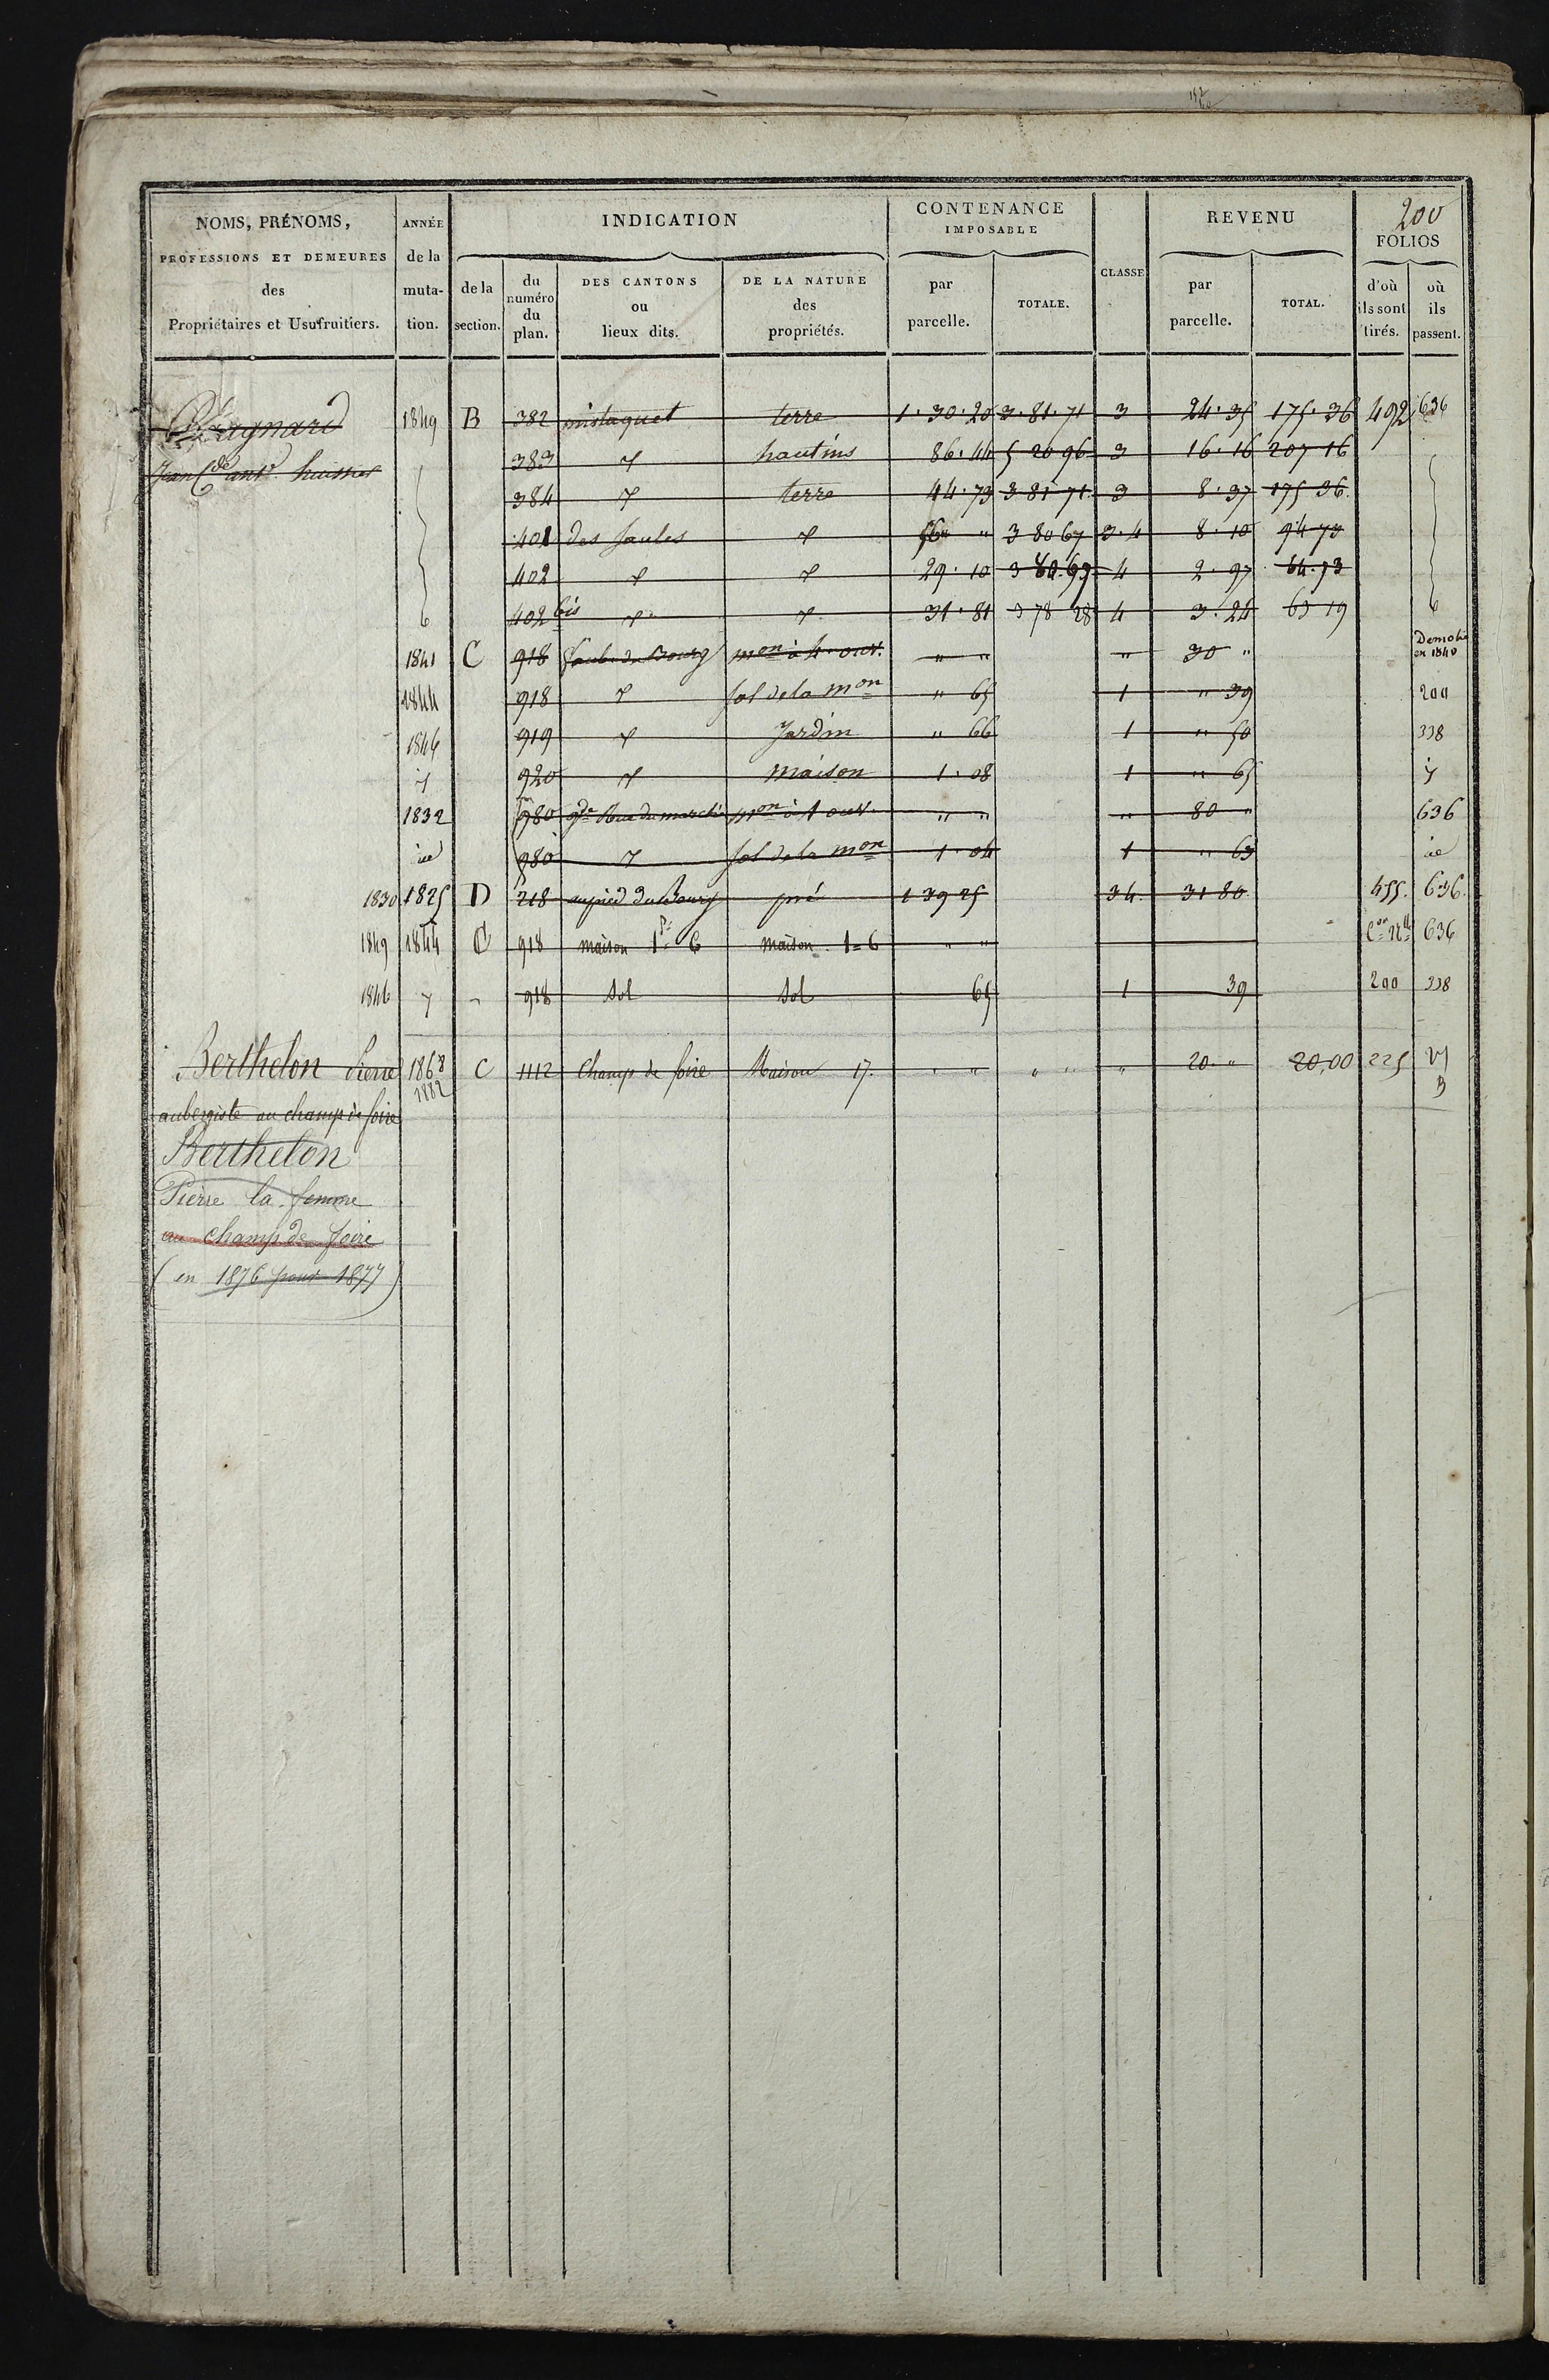 200
NOMS, PRÉNOMS, PROFESSIONS ET DEMEURES des Propriétaires et Usufruitiers.
ANNÉE de la muta- tion.
INDICATION
de la section.
du numéro du plan.
DES CANTONS ou lieux dits.
DE LA NATURE des propriétés.
CONTENANCE IMPOSABLE
par parcelle.
TOTALE.
CLASSE
REVENU
par parcelle.
TOTAL.
FOLIOS
d'où ils sont tirés.
où ils passent.
1849 B 382 terre 1.30.20 3.81.71 3 24.35 175.36 492 636
Jean Cde ant. huissier 383 hautins 86.44 5 20 96 3 16.16 207 16
384 terre 44.73 3 81 71 3 8.37 175 36
401 des Saules 3 80 67 3.4 8.10 94 73
402 29.10 4 2.97
402 bis 31.81 3 78 28 4 3.24 63 19
1841 C 918 faub. du Bourg mon à 4 ouv. " " " 30 " Demolie en 1840
1844 918 sol de la mon " 65 1 " 39 200
1846 919 Jardin " 66 1 " 50 338
920 maison 1.08 1 " 65
1832 980 gde Rue du marché mon à 1 ouv. " " " 80 " 636
id 980 sol de la mon 1.04 1 " 63 id
1830 1825 D 218 au pied du Bourg pré 1 39 25 3 4. 31 80 455. 636.
1849 1844 C 918 maison 1 P. 6 maison 1 = 6 " " 636
1846 918 sol sol 65 1 39 200 338
Berthelon Pierre 1868 C 1112 Champ de foire Maison 17. " " " " " 20 " 20,00 225
1882
aubergiste au champ de foire
Berthelon
Pierre la femme
au champ de foire
(en 1876 pour 1877)